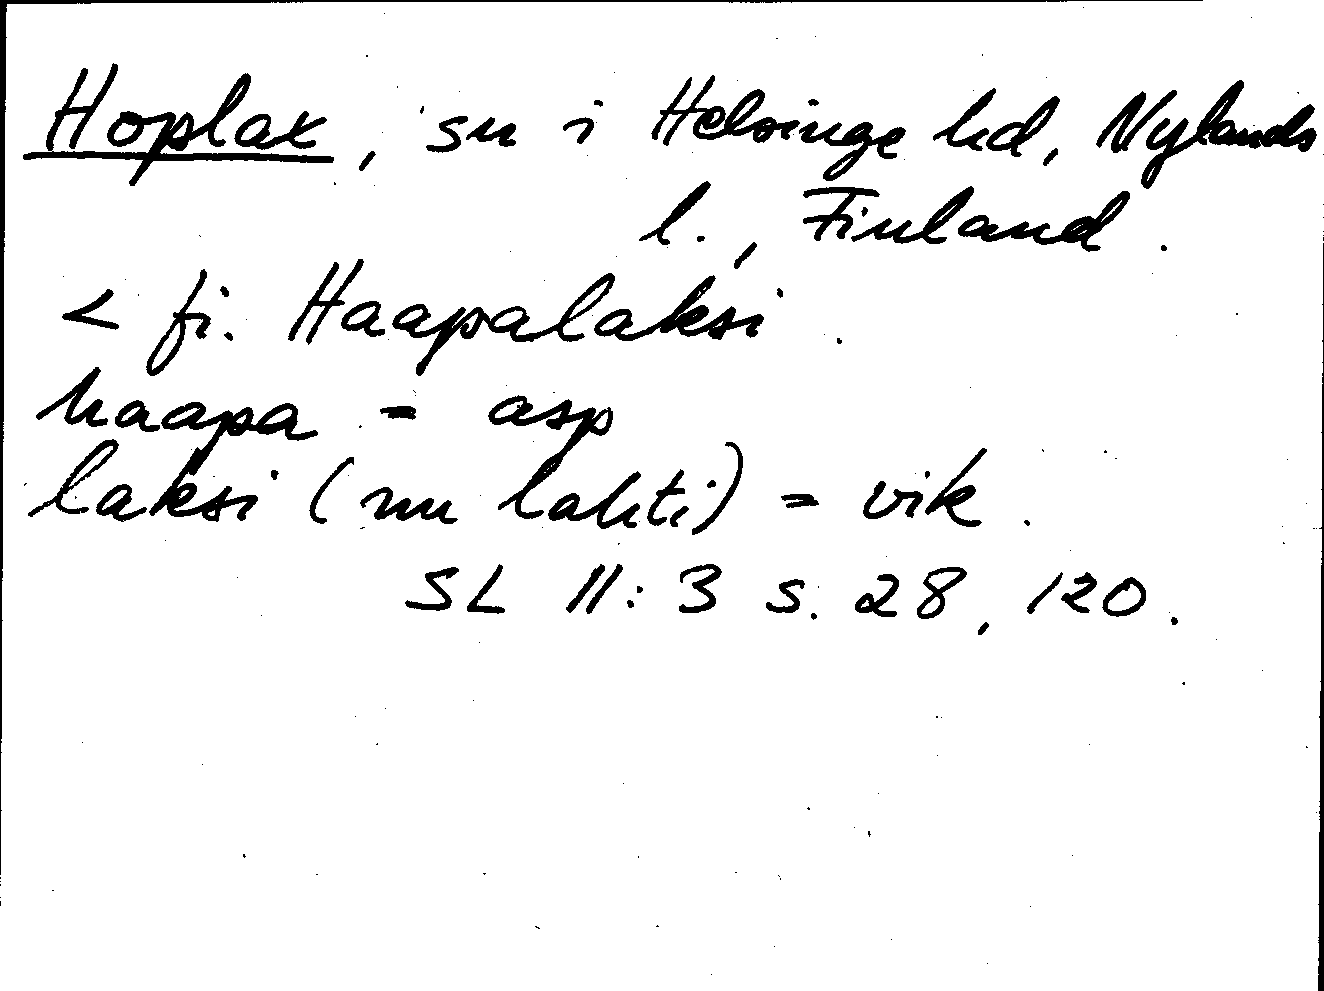 Hoplax, sn i Helsinge hd, Nylands
l., Finland.
< fi. Haapalaksi.
haapa = asp
laksi (nu lahti) = vik.
SL II:3 s. 28, 120.